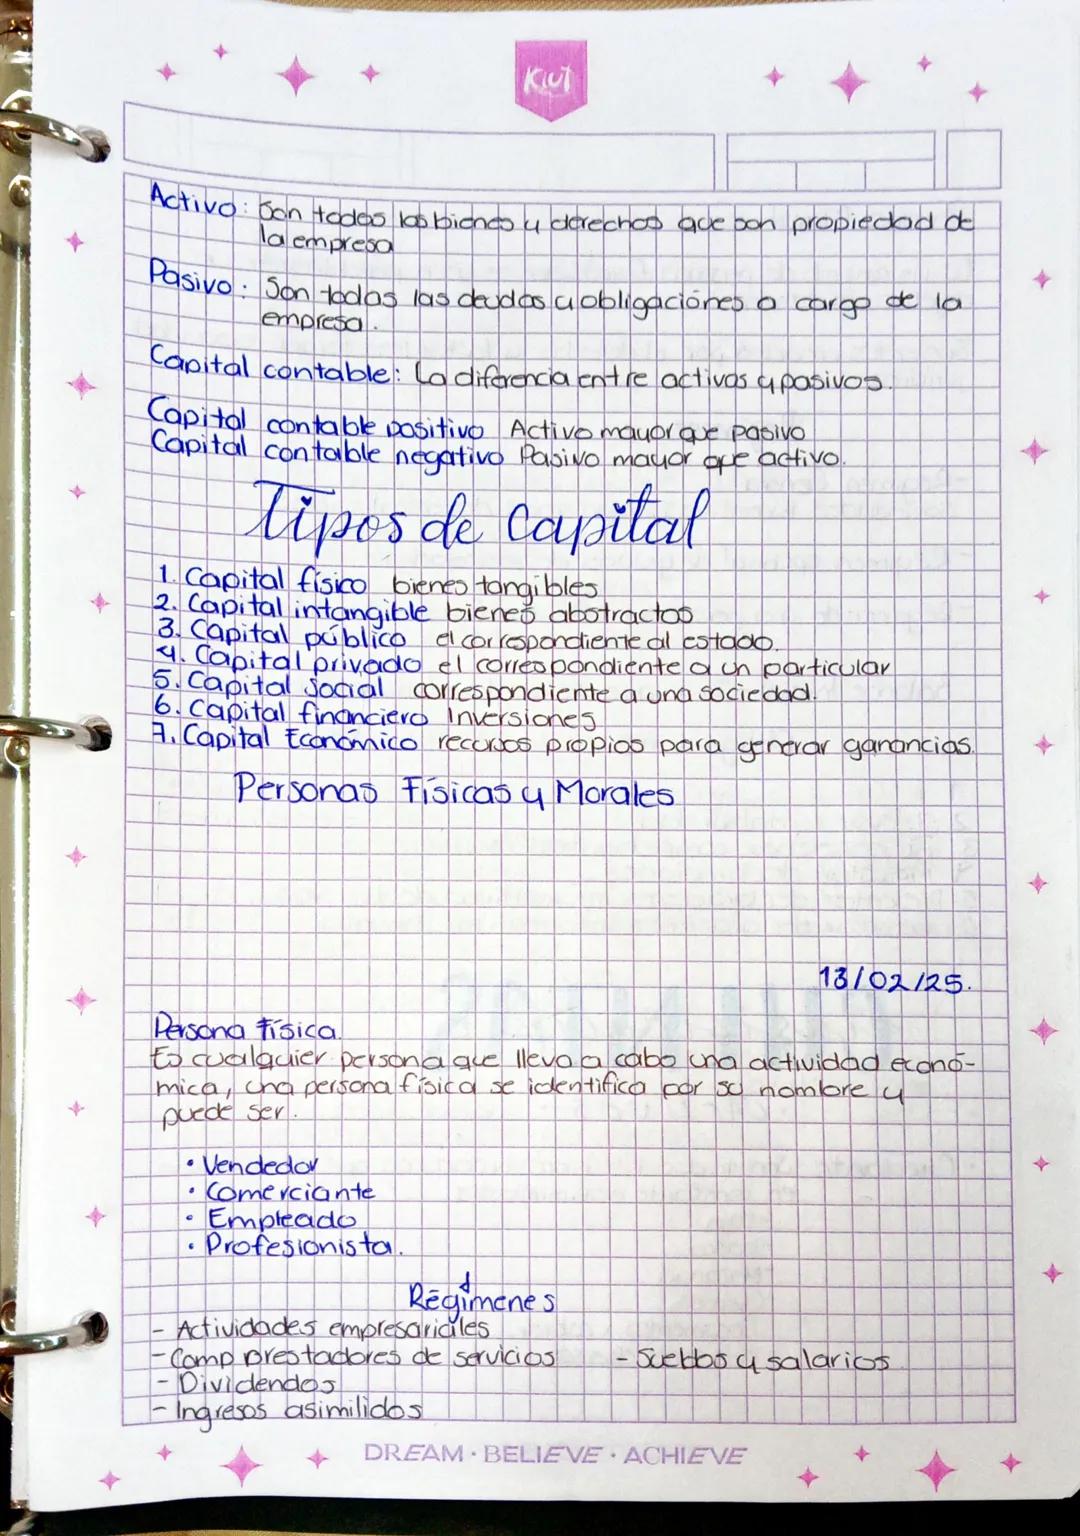 Kiut
Activo: Son todos los bienes y derechos que son propiedad de
la empresa
Pasivo: Son todas las deudas y obligaciónes a cargo de la
empresa.
Capital contable: La diferencia entre activos y pasivos.
Capital contable positivo Activo mayor que pasivo
Capital contable negativo Pasivo mayor que activo.
Tipos de Capital
1. Capital físico bienes tangibles
2. Capital intangible bienes abstractos
3. Capital público el correspondiente al estado.
4. Capital privado el correspondiente a un particular
5. Capital social correspondiente a una sociedad.
6. Capital financiero Inversiones
7. Capital Económico recursos propios para generar ganancias.
Personas Físicas y Morales
13/02/25.
Persona física.
Es cualquier persona que lleva a cabo una actividad econó-
mica, una persona física se identifica por su nombre y
puede ser.
• Vendedor
• Comerciante
• Empleado
• Profesionista.
Regímenes
- Actividades empresariales
- Comp prestadores de servicios - Sueldos y salarios
- Dividendos
- Ingresos asimilidos
DREAM · BELIEVE · ACHIEVE